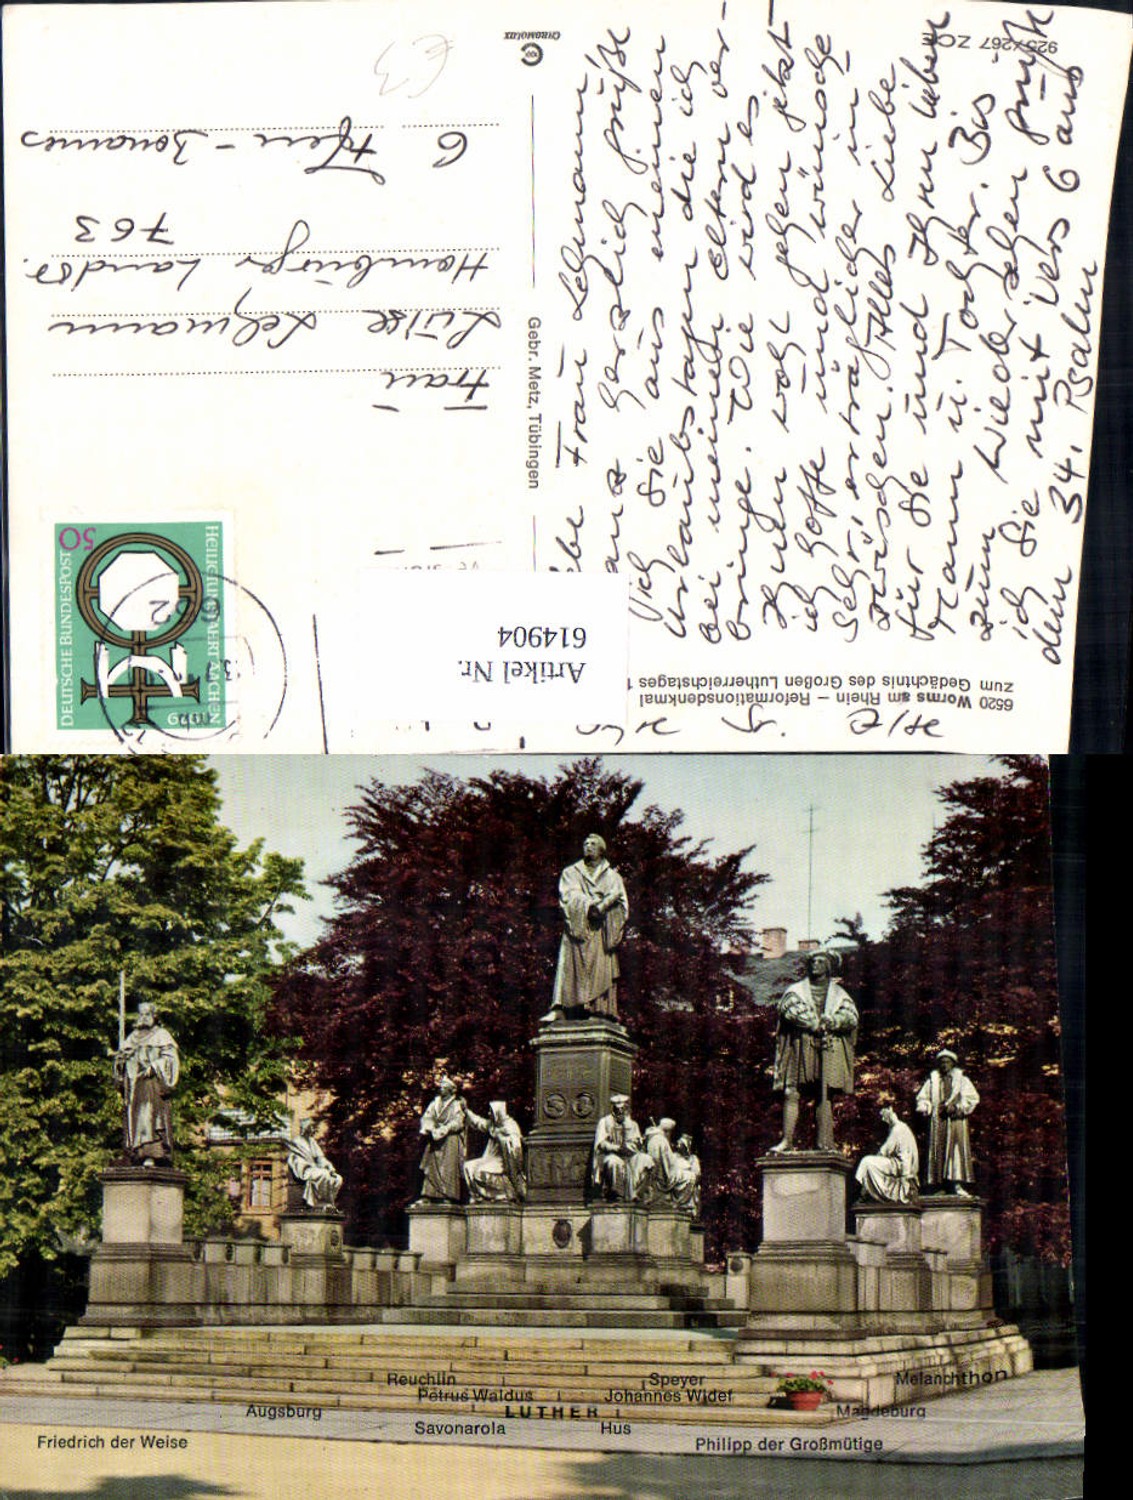 6520 Worms am Rhein – Reformationsdenkmal
zum Gedächtnis des Großen Lutherreichstages 1
Artikel Nr.
614904
Gebr. Metz, Tübingen
CHROMOLUX
925/267 ZCE
DEUTSCHE BUNDESPOST
50
HEILIGTUMSFAHRT AACHEN
1969
62
Frau
Luise Lehmann
Hamburger Landstr.
763
6 Ffm - Bonames
€3
Liebe Frau Lehmann!
Ganz herzlich grüße
ich Sie aus meinen
Urlaubstagen die ich
bei meinen Eltern ver-
bringe. Wie wird es
Ihnen wohl gehen jetzt
ich hoffe und wünsche
sehr! erträglicher in-
zwischen. Alles Liebe
für Sie und Ihren lieben
Mann u. Tochter. Bis
zum Wiedersehen grüße
ich Sie mit Vers 6 aus
dem 34. Psalm
Reuchlin
Speyer
Melanchthon
Petrus Waldus
Johannes Widef
Augsburg
LUTHER
Magdeburg
Savonarola
Hus
Friedrich der Weise
Philipp der Großmütige